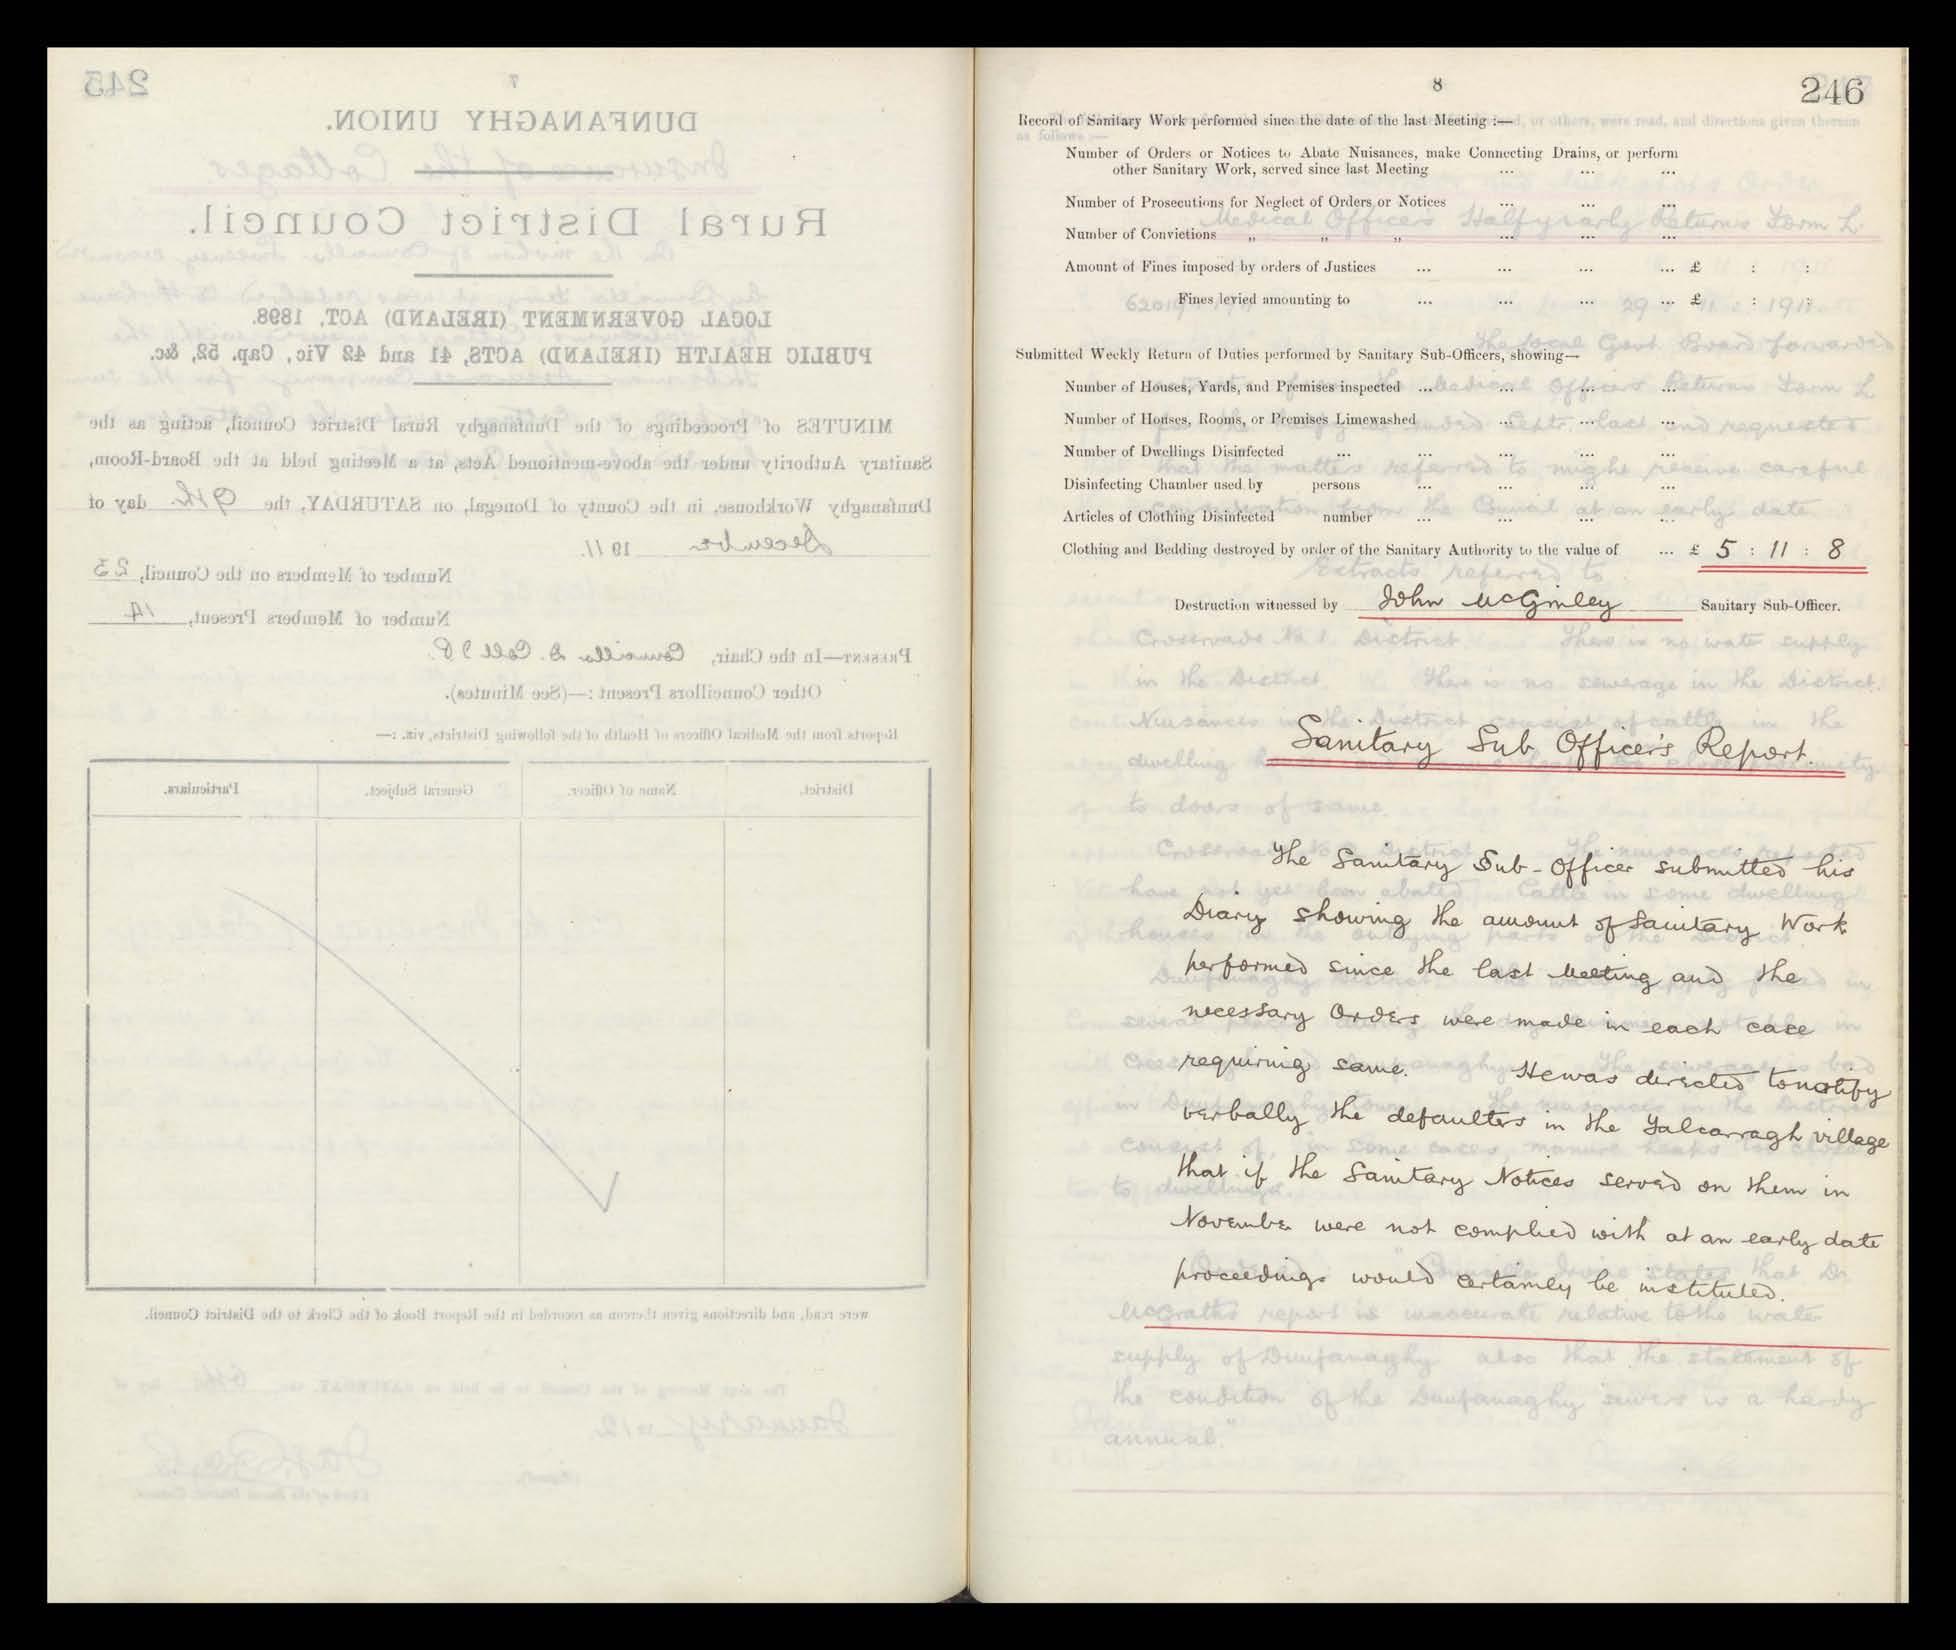 245
7
DUNFANAGHY UNION.
Rural District Council.
LOCAL GOVERNMENT (IRELAND) ACT, 1898.
PUBLIC HEALTH (IRELAND) ACTS, 41 and 42 Vic, Cap. 52, &c.
MINUTES of Proceedings of the Dunfanaghy Rural District Council, acting as the
Sanitary Authority under the above-mentioned Acts, at a Meeting held at the Board-Room,
Dunfanaghy Workhouse, in the County of Donegal, on SATURDAY, the 9th day of
December 1911.
Number of Members on the Council, 23
Number of Members Present, 14
PRESENT—In the Chair, Councillor D. Coll J.P.
Other Councillors Present:—(See Minutes).
Reports from the Medical Officers of Health of the following Districts, viz.:—
District. Name of Officer. General Subject. Particulars.
were read, and directions given thereon as recorded in the Report Book of the Clerk to the District Council.
8
246
Record of Sanitary Work performed since the date of the last Meeting :—
Number of Orders or Notices to Abate Nuisances, make Connecting Drains, or perform
other Sanitary Work, served since last Meeting ... ... ...
Number of Prosecutions for Neglect of Orders or Notices ... ... ...
Number of Convictions „ „ „ ... ... ...
Amount of Fines imposed by orders of Justices ... ... ... ... £ : :
Fines levied amounting to ... ... ... ... £ : :
Submitted Weekly Return of Duties performed by Sanitary Sub-Officers, showing—
Number of Houses, Yards, and Premises inspected ... ... ... ...
Number of Houses, Rooms, or Premises Limewashed ... ... ...
Number of Dwellings Disinfected ... ... ... ... ...
Disinfecting Chamber used by persons ... ... ... ...
Articles of Clothing Disinfected number ... ... ... ...
Clothing and Bedding destroyed by order of the Sanitary Authority to the value of ... £ 5 : 11 : 8
Destruction witnessed by John McGinley Sanitary Sub-Officer.
Sanitary Sub Officer's Report.
The Sanitary Sub-Officer submitted his
Diary showing the amount of Sanitary Work
performed since the last Meeting and the
necessary Orders were made in each case
requiring same. He was directed to notify
verbally the defaulters in the Falcarragh village
that if the Sanitary Notices served on them in
November were not complied with at an early date
proceedings would certainly be instituted.